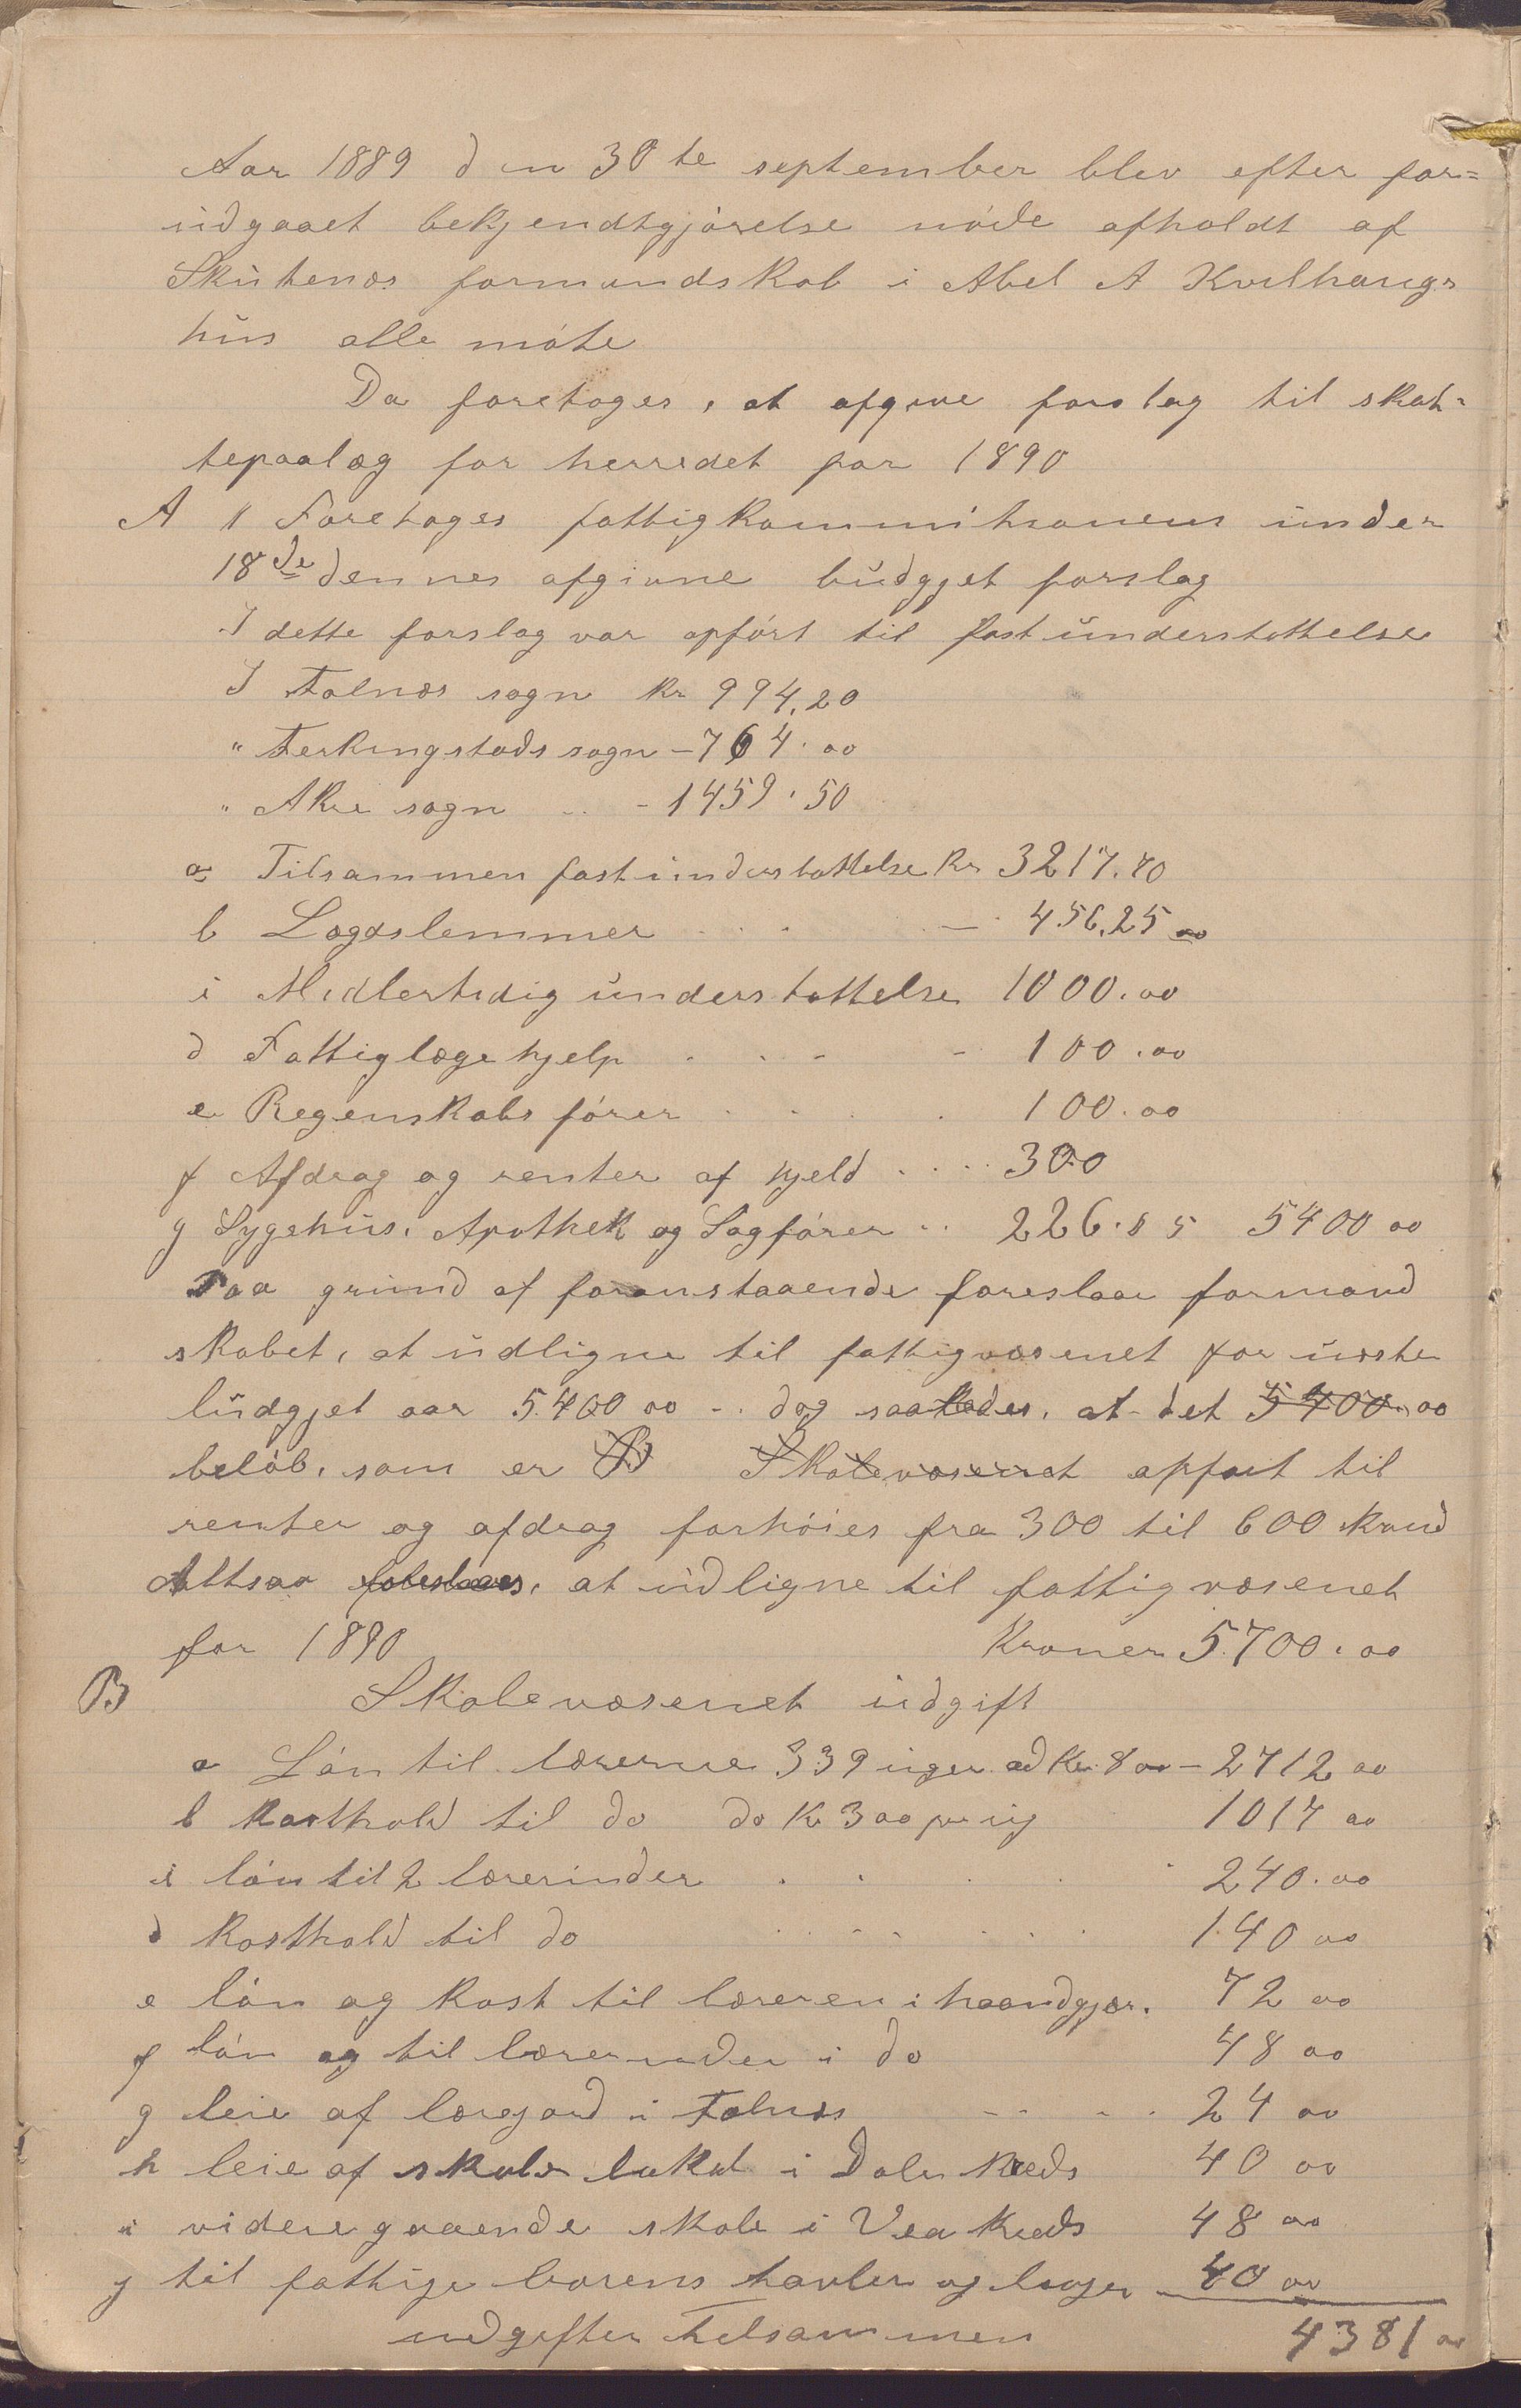 Aar 1889 den 30te september blev efter for=
udgaaet bekjendtgjørelse møde afholdt af
Skutenæs formandskab i Abel A Kvilhaugs
hus alle møte
Da foretoges, at afgive forslag til skat=
tepaalæg for herredet for 1890
A 1 Foretoges fattigkommitionens under
18de dennes afgivne budgjet forslag
I dette forslag var opført til fast understøttelse
I Falnæs sogn Kr 994,20
" Ferkingstads sogn – 764.00
" Akre sogn .. - 1459.50
a Tilsammen fast understøttelse Kr 3217.70
b Lægdslemmer . . . — 456,25
c Midlertidig understøttelse 1000.00
d Fattiglægehjelp . . - - 100.00
e Regenskabsfører . . . . 100.00
f Afdrag og renter af gjeld .... 300
g Sygehus, Apothek og Sagfører .. 226.85 5400 00
Paa grund af foranstaaende foreslaar formand
skabet, at udligne til fattigvæsenet for næste
budgjet aar 5400 00 -. dog saaledes, at det 5400.00
beløb, som er B Skolevæsenet opført til
renter og afdrag forhøies fra 300 til 600 kroner
Altsaa foreslaaes, at udligne til fattigvæsenet
for 1890 Kroner 5700.00
B Skolevæsenet udgift
a Løn til lærerne 339 uger ad Kr. 8 00 – 2712 00
b kosthold til do do Kr 3 00 pr ug 1017 00
c løn til 2 lærerinder . . . . . 240.00
d kosthold til do . - - . . . 140 00
e løn og kost til læreren i haandgjer. 72 00
f løn og til lærerinder i do 48 00
g leie af læregard i Falnæs - - - . 24 00
h leie af skole lokal i Dale kreds 40 00
i videregaaende skole i Vea kreds 48 00
j til fattige børens tavler og bøger 40 00
udgifter tilsammen 4381 00